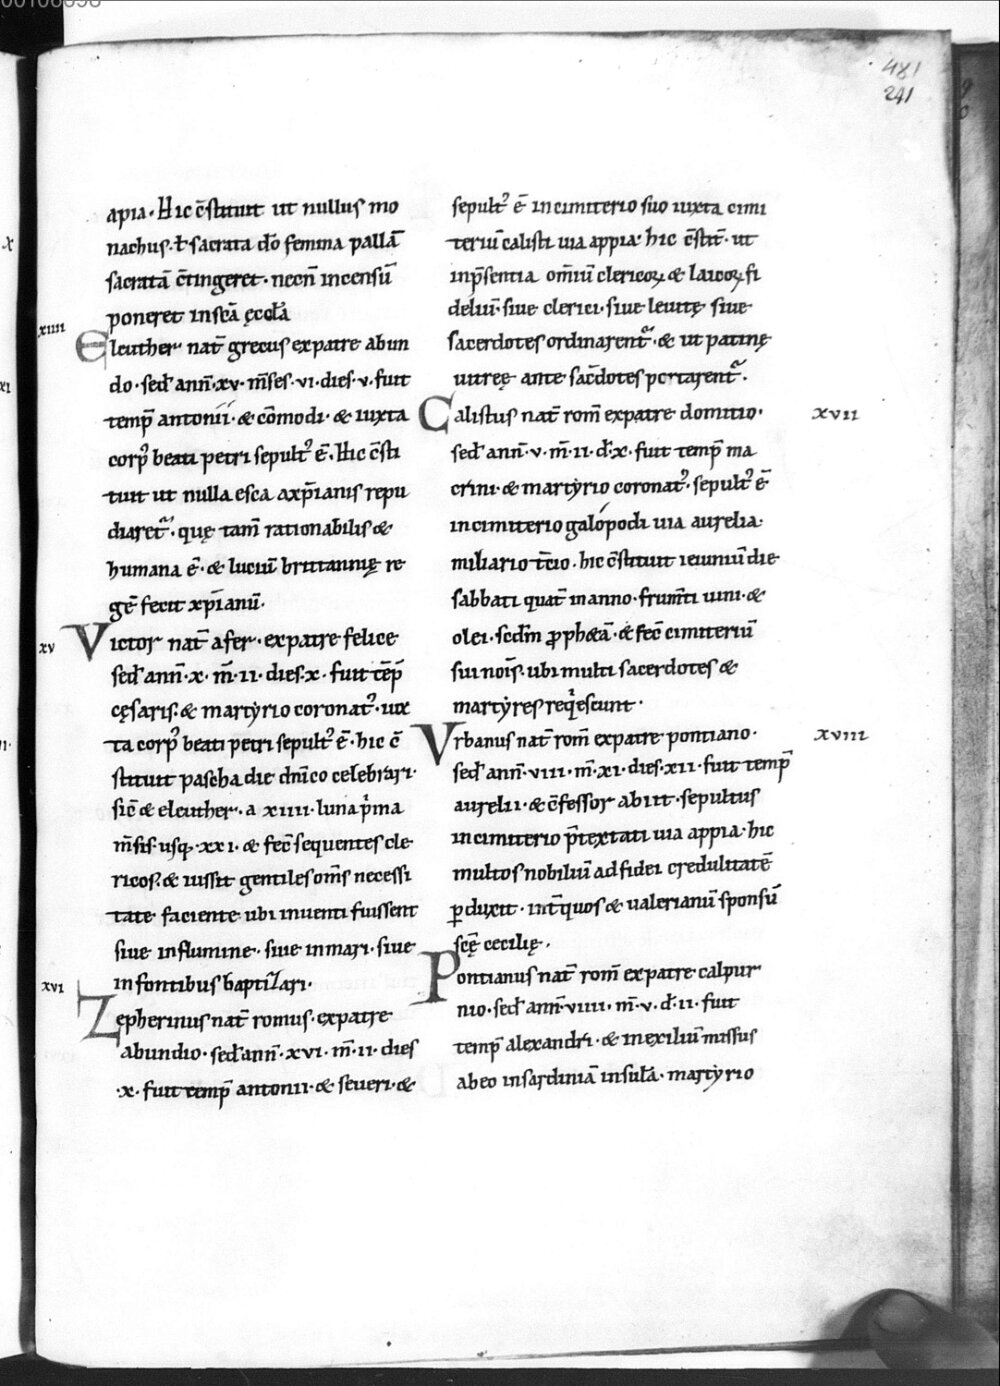 481
241
apia. Hic c̄stituit ut nullus mo
nachus. ł sacrata dō femina pallā
sacratā c̄tingeret. necn̄ incensū
poneret in sc̄a ęcclā
xiiii
Eleuther nat̄ grecus ex patre abun
do. sed ann̄. xv. m̄ses. vi. dies. v. fuit
temp̄ antonii. & cōmodi. & iuxta
corp⁹ beati petri sepult⁹ ē. Hic c̄sti
tuit ut nulla esca a xp̄ianis repu
diaret᷑. quę tam̄ rationabilis &
humana ē. & luciū brittannię re
gē fecit xp̄ianū.
xv
Victor nat̄ afer. ex patre felice
sed ann̄. x. m̄. ii. dies. x. fuit tēp̄
cęsaris. & martyrio coronat⁹. iux
ta corp⁹ beati petri sepult⁹ ē. hic c̄
stituit pascha die dn̄ico celebrari.
sic̄ & eleuther. a xiiii. luna p̍ma
m̄sis. usq. xxi. & fec̄ sequentes cle
ricos. & iussit gentiles om̄s necessi
tate faciente ubi inuenti fuissent
siue in flumine. siue in mari. siue
in fontibus baptizari.
xvi
Zepherinus nat̄ romus. ex patre
abundio. sed ann̄. xvi. m̄. ii. dies
.x. fuit temp̄ antonii. & seueri. &
sepult⁹ ē in cimiterio suo iuxta cimi
teriū calisti uia appia. hic c̄stit̄. ut
in p̄sentia om̄iū clericoꝝ & laicoꝝ fi
deliū. siue clerici. siue leuitę siue
sacerdotes ordinarent᷑. & ut patinę
uitreę ante sac̄dotes portarent᷑.
Calistus nat̄ rom̄ ex patre domitio.
xvii
sed ann̄. v. m̄. ii. d̄. x. fuit temp̄ ma
crini. & martyrio coronat⁹. sepult⁹ ē
in cimiterio galópodi uia aurelia.
miliario t̄cio. hic c̄stituit ieiuniū die
sabbati quat̄ in anno. frum̄ti uini. &
olei. scd̄m ꝓph&ā. & fec̄ cimiteriū
sui nōis. ubi multi sacerdotes &
martyres req̍escunt.
Vrbanus nat̄ rom̄ ex patre pontiano.
xviii
sed ann̄. viii. m̄. xi. dies. xii. fuit temp̄
aurelii. & c̄fessor abiit. sepultus
in cimiterio p̄textati uia appia. hic
multos nobiliū ad fidei credulitatē
ꝑduxit. int̄ quos & ualerianū sponsū
scę̄ cecilię.
Pontianus nat̄ rom̄ ex patre calpur
nio. sed ann̄. viiii. m̄. v. d̄. ii. fuit
temp̄ alexandri. & in exiliū missus
ab eo in sardiniā insulā. martyrio